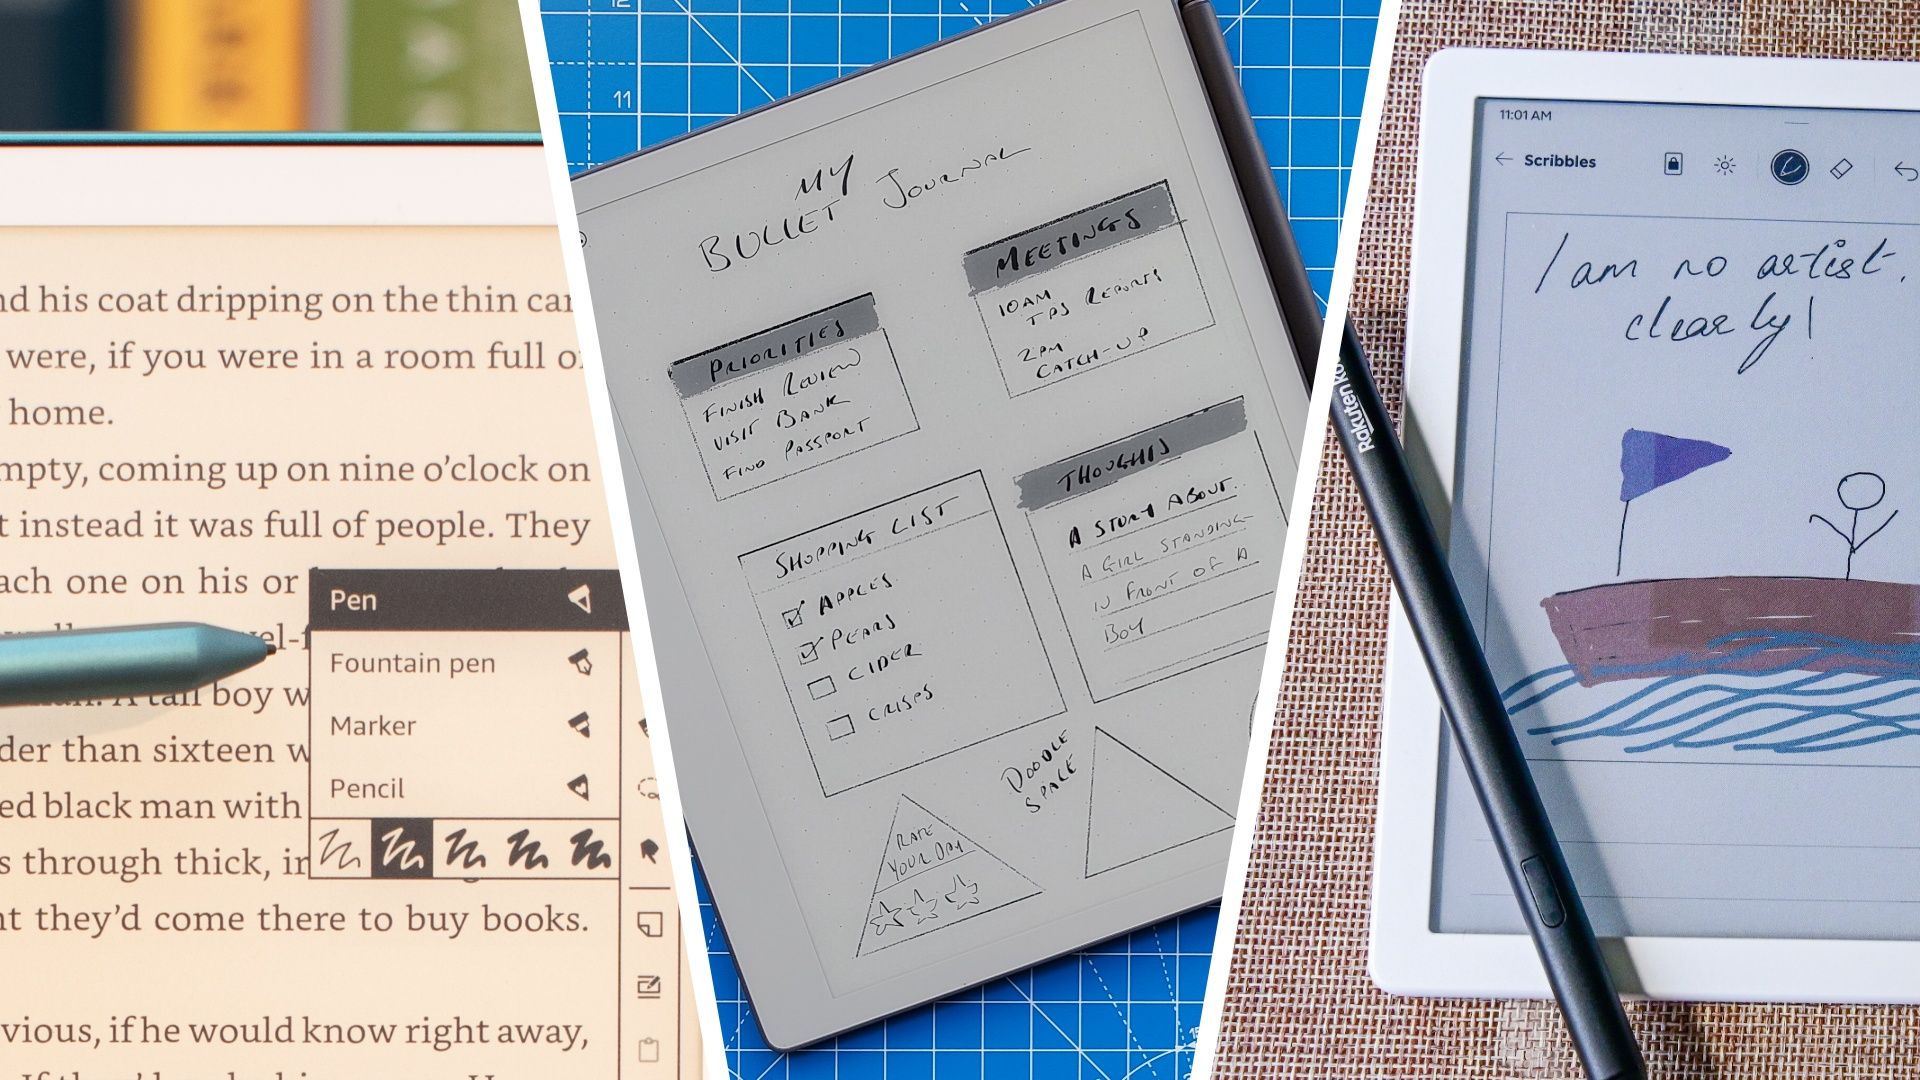 nd his coat dripping on the thin car
were, if you were in a room full o
home.
mpty, coming up on nine o'clock on
t instead it was full of people. They
ach one on his or
el-f
A tall boy w
der than sixteen w
ed black man with
s through thick, in
nt they'd come there to buy books.
vious, if he would know right away,
Pen
Fountain pen
Marker
Pencil
12
11
15
MY
BULLET JOURNAL
PRIORITIES
FINISH REVIEW
VISIT BANK
FIND PASSPORT
MEETINGS
10AM
TPS REPORTS
2PM
CATCH-UP
SHOPPING LIST
APPLES
PEARS
CIDER
CRISPS
THOUGHTS
A STORY ABOUT..
A GIRL STANDING
IN FRONT OF A
BOY
DOODLE
SPACE
RATE
YOUR DAY
Rakuten ko
11:01 AM
Scribbles
I am no artist.
clearly!